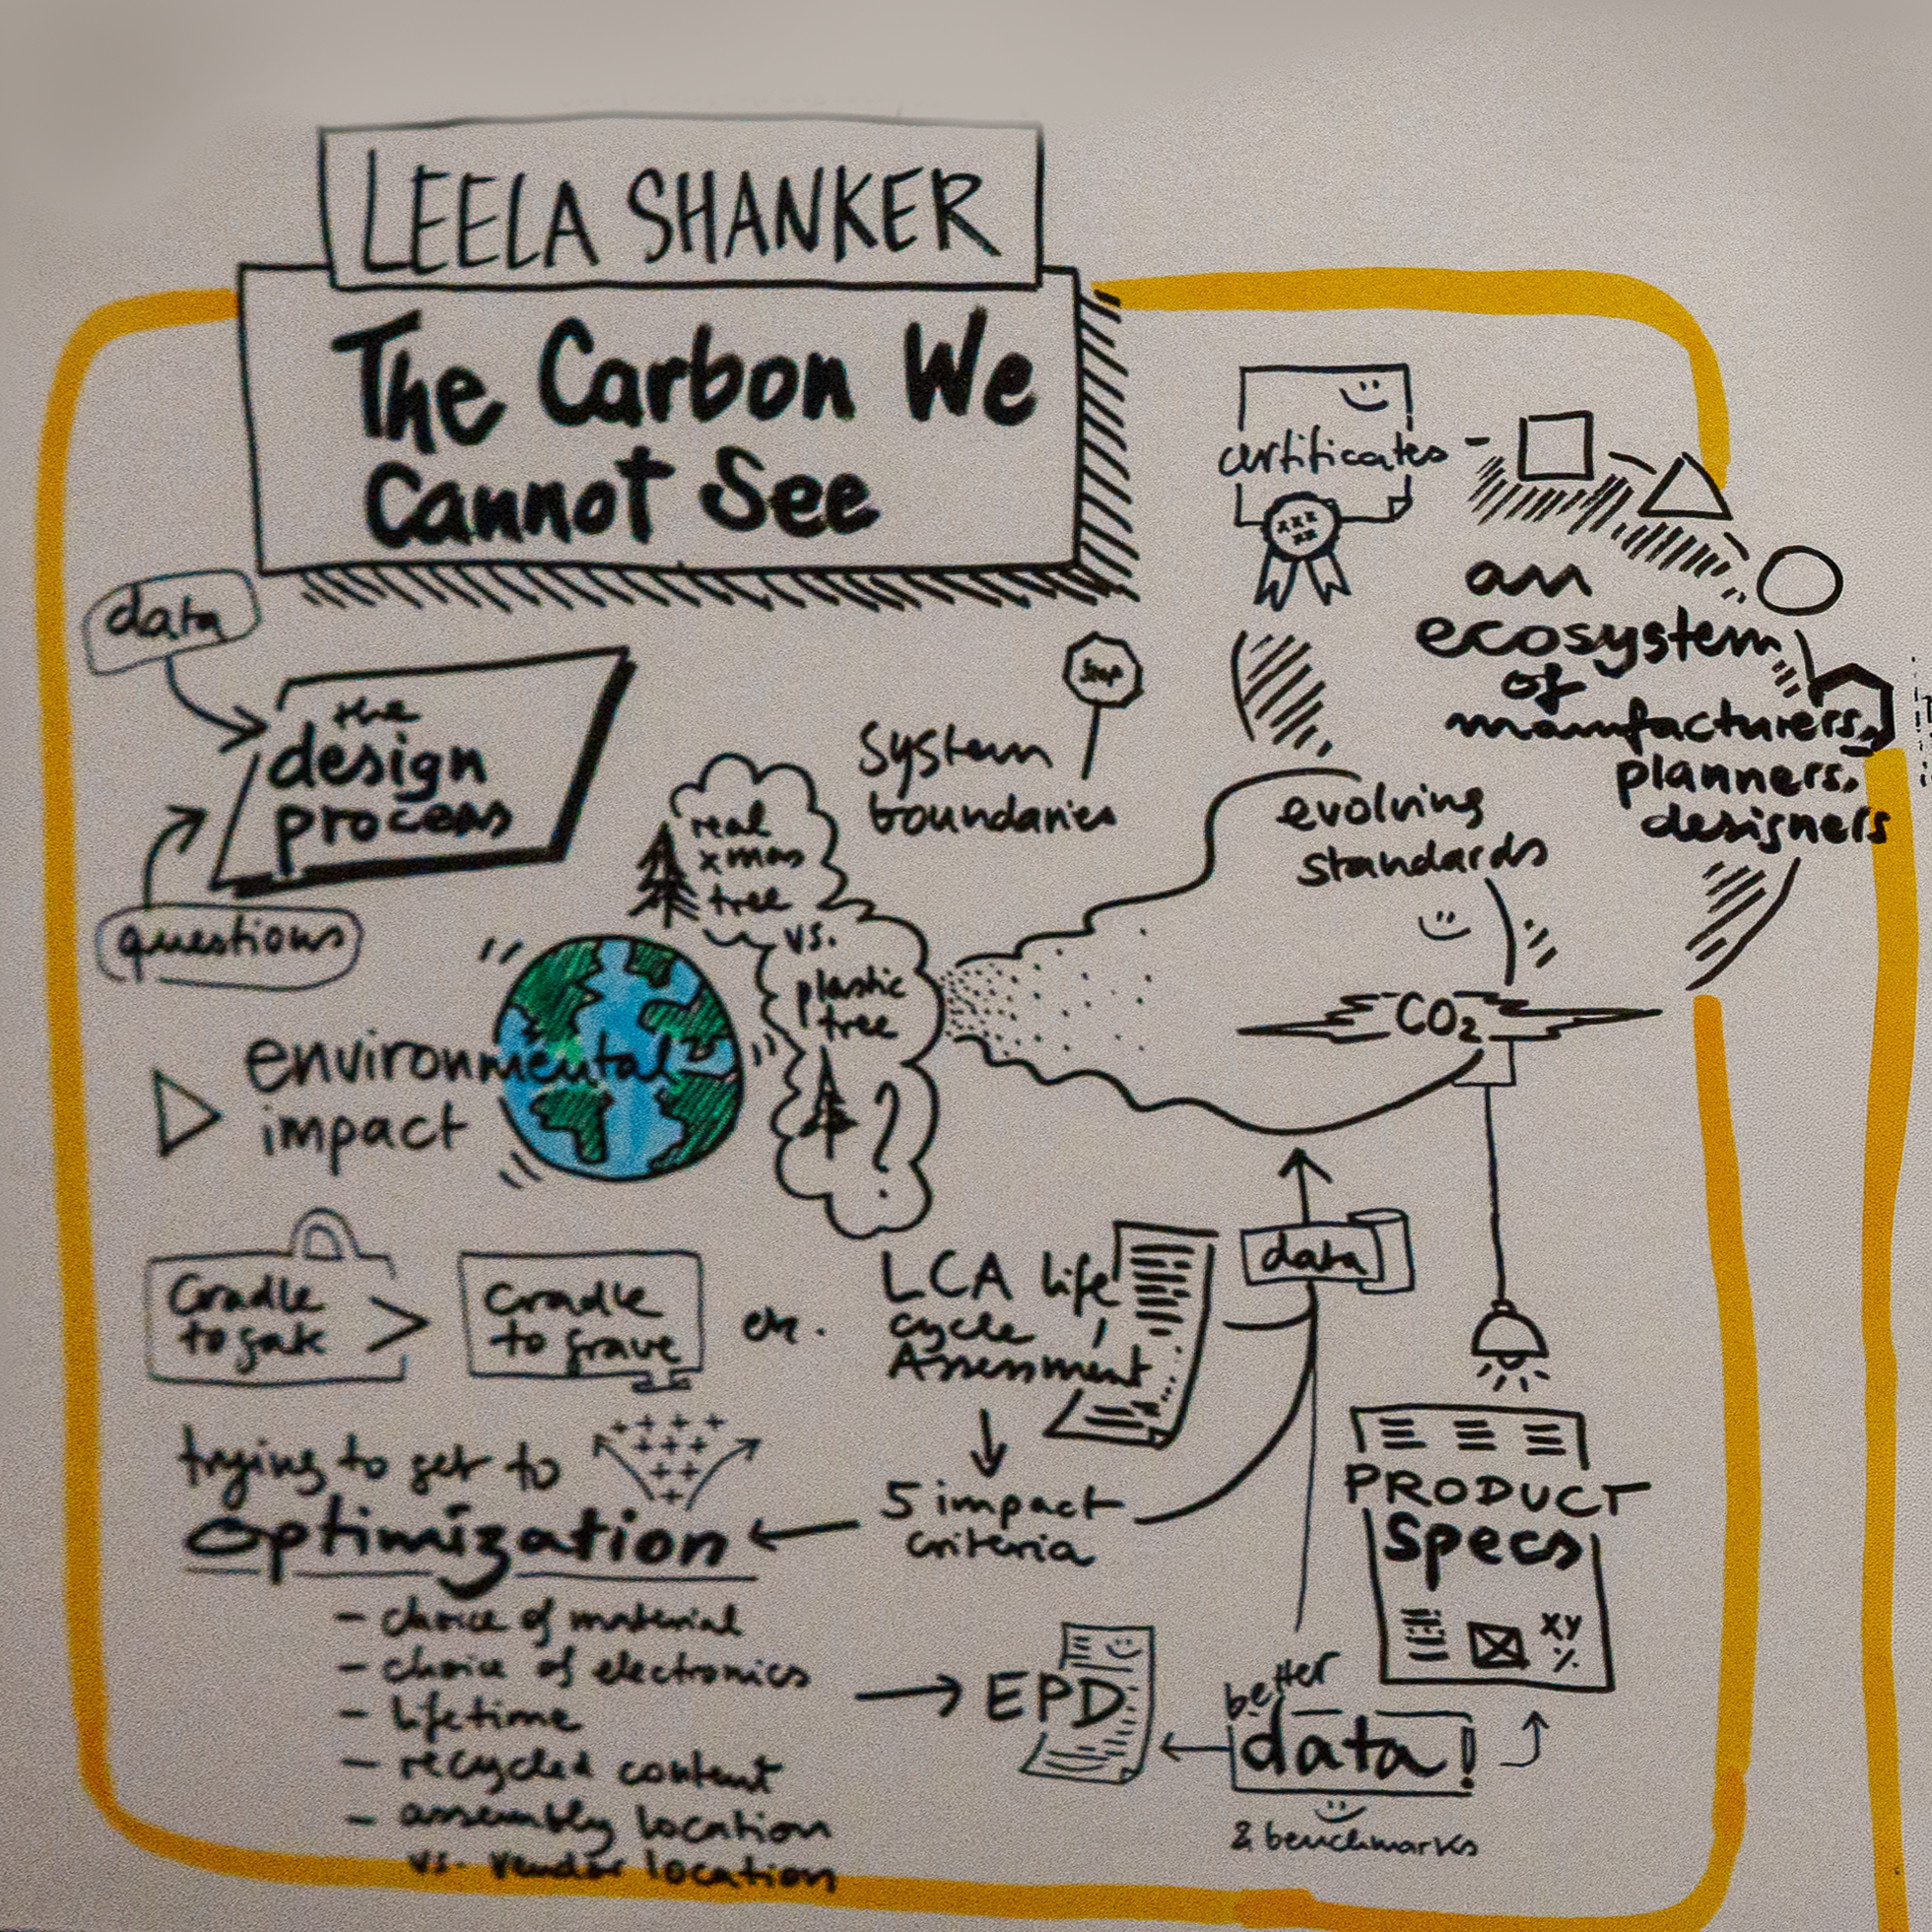 LEELA SHANKER
The Carbon We
Cannot See
data
the
design
process
questions
environmental
impact
real
xmas
tree
vs.
plastic
tree
?
System
boundaries
Stop
certificates
xxx
xx
an
ecosystem
of
manufacturers,
planners,
designers
evolving
standards
CO₂
Cradle
to gate
Cradle
to grave
etc.
LCA life
cycle
Assessment
data
5 impact
criteria
trying to get to
Optimization
- choice of material
- choice of electronics
- lifetime
- recycled content
- assembly location
vs. vendor location
EPD
better
data!
& benchmarks
PRODUCT
Specs
XY
%